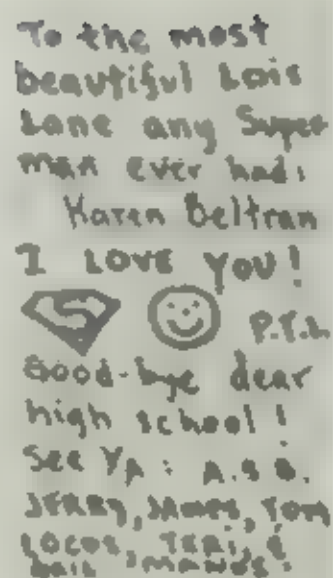 To the most
beautiful Lois
Lane any Super
man ever had:
Karen Beltran
I LOVE YOU!
S P.T.L.
Good-bye dear
high school!
See YA: A.S.B.
JERRY, JAMES, TOM
LOCOS, TERI,